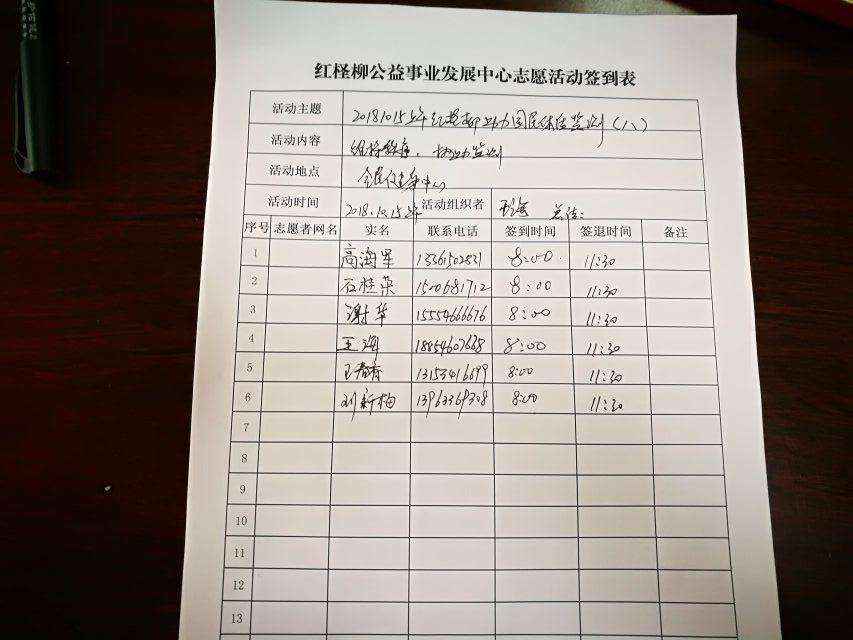 红柽柳公益事业发展中心志愿活动签到表
活动主题 20181015上午红柽柳协助国民体质监测（八）
活动内容 维持秩序，协助监测
活动地点 全民健身中心
活动时间 2018.10.15上午 活动组织者 总结：
序号 志愿者网名 实名 联系电话 签到时间 签退时间 备注
1 高海军 8:00 11:30
2 石桂荣 8:00 11:30
3 谢华 15554666676 8:00 11:30
4 王海 18854607668 8:00 11:30
5 王春香 13153416699 8:00 11:30
6 刘新梅 13963369308 8:00 11:30
7
8
9
10
11
12
13